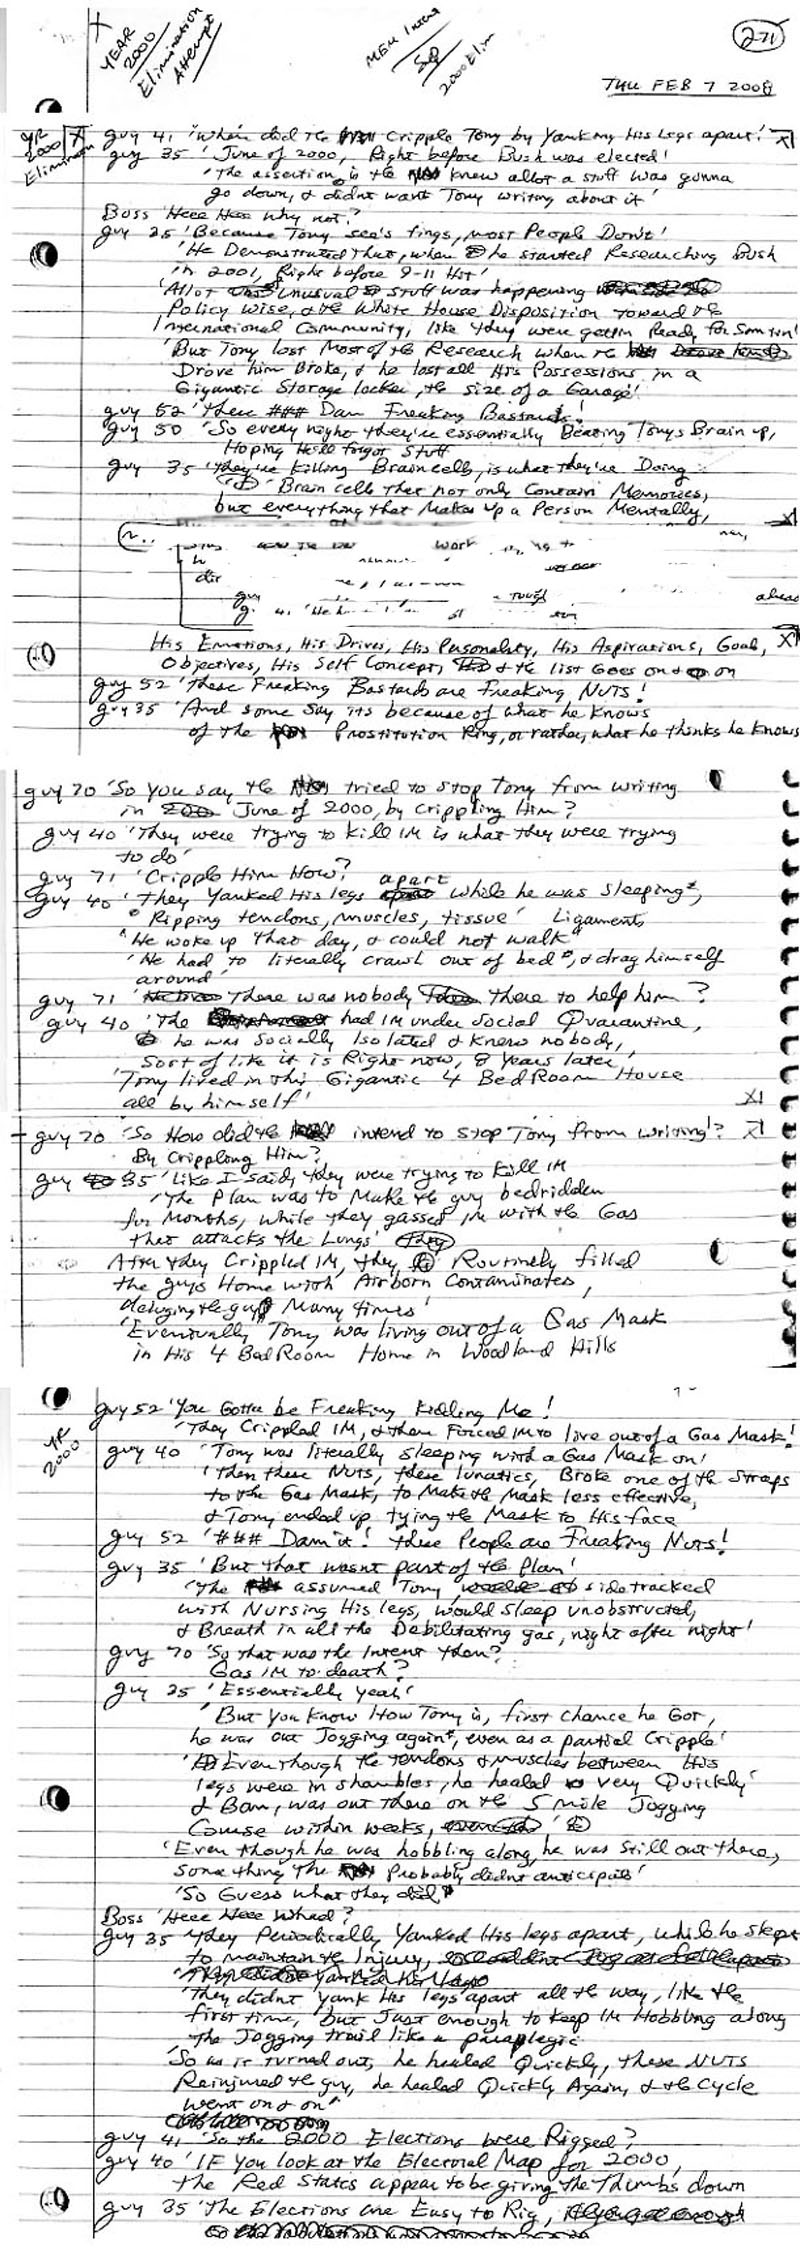 X
YEAR
2000
Elimination
Attempt
MEM Intent
Sup
2000 Elim
271
THU FEB 7 2008
YR
2000
Elimination
X
guy 41 'When did the Cripple Tony by Yanking His Legs apart?' X
guy 35 'June of 2000, Right before Bush was elected!
'The assertion is the knew allot a stuff was gunna
go down, & didnt want Tony writing about it'
Boss 'Heee Hee Why not?
guy 35 'Because Tony see's tings, most People Don't'
'He Demonstrated that, when he started Researching Bush
in 2001, Right before 9-11 Hit'
'Allot Unusual stuff was happening
Policy wise, & the White House Disposition toward the
International Community, like they were gettin Ready for Somtin'
'But Tony lost Most of the Research when the
Drove him Broke, & he lost all His Possessions in a
Gigantic Storage locker, the size of a Garage'
guy 52 'These ### Dam Freaking Bastards!
guy 50 'So every night they're essentially Beating Tonys Brain up,
Hoping He'll forgot Stuff
guy 35 'they're Killing Braincells, is what they're Doing
'Brain cells that not only Contain Memories,
but everything that Makes up a Person Mentally, X
work
dir
guy
a rough
ahead
g. 41 'He
His Emotions, His Drives, His Personality, His Aspirations, Goal, X
Objectives, His Self Concept, & the list Goes on & on
guy 52 'These Freaking Bastards are Freaking NUTS!
guy 35 'And some say its because of what he knows
of the Prostitution Ring, or rather, what he thinks he knows
guy 70 'So you say the tried to stop Tony from writing
in June of 2000, by Crippling Him?
guy 40 'They were trying to kill IM is what they were trying
to do'
guy 71 'Cripple Him How?
apart
guy 40 'They Yanked His legs while he was sleeping',
'Ripping tendons, muscles, tissue' Ligaments
'He woke up that day, & could not walk'
'He had to literally crawl out of bed, & drag himself
around'
guy 71 There was nobody there to help him?
guy 40 'The had IM under Social Quarantine,
he was Socially Isolated & Knew nobody,
Sort of like it is Right now, 8 Years later'
'Tony lived in this Gigantic 4 BedRoom House
all by himself' X
guy 70 'So How did the intend to stop Tony from writing'? X
By Crippling Him?
guy 35 'Like I said, they were trying to Kill IM
'The Plan was to Make the guy bedridden
for Months, while they gassed IM with the Gas
that attacks the Lungs'
After they Crippled IM, they Routinely filled
the guys Home with Airborn Contaminates,
deluging the guy Many times'
'Eventually Tony was living out of a Gas Mask
in His 4 BedRoom Home in Woodland Hills
guy 52 'You Gotta be Freaking Kidding Me!
YR
2000
'They Crippled IM, & then Forced IM to live out of a Gas Mask!
guy 40 'Tony was literally sleeping with a Gas Mask on'
'Then these Nuts, these lunatics, Broke one of the Straps
to the Gas Mask, to Make the Mask less effective,
& Tony ended up tying the Mask to His face
guy 52 '### Dam it! these People are Freaking Nuts!
guy 35 'But that wasnt part of the Plan'
'The assumed Tony, sidetracked
with Nursing His legs, would sleep unobstructed,
& Breath in all the Debilitating gas, night after night'
guy 70 'So that was the Intent then?
Gas IM to death?
guy 35 'Essentially Yeah'
'But you know How Tony is, first chance he Got,
he was out Jogging again, even as a partial Cripple'
'Even though the tendons & muscles between His
legs were in shambles, he healed very Quickly'
& Bam, was out there on the 5 mile Jogging
Course within weeks,
'Even though he was hobbling along, he was still out there,
some thing The Probably didnt anticipate'
'So Guess what they did,
Boss 'Heee Heee Whad?
guy 35 'they Periodically Yanked His legs apart, while he slept
to maintain the Injury,
'They didnt yank His legs apart all the way, like the
first time, but Just enough to keep IM Hobbling along
the Jogging trail like a paraplegic
'So as it turned out, he healed Quickly, these NUTS
Reinjured the guy, he healed Quickly Again, & the Cycle
went on & on'
guy 41 'So the 2000 Elections were Rigged?
guy 40 'IF You look at the Electoral Map for 2000,
the Red States appear to be giving the Thumbs down
guy 35 'The Elections are Easy to Rig,